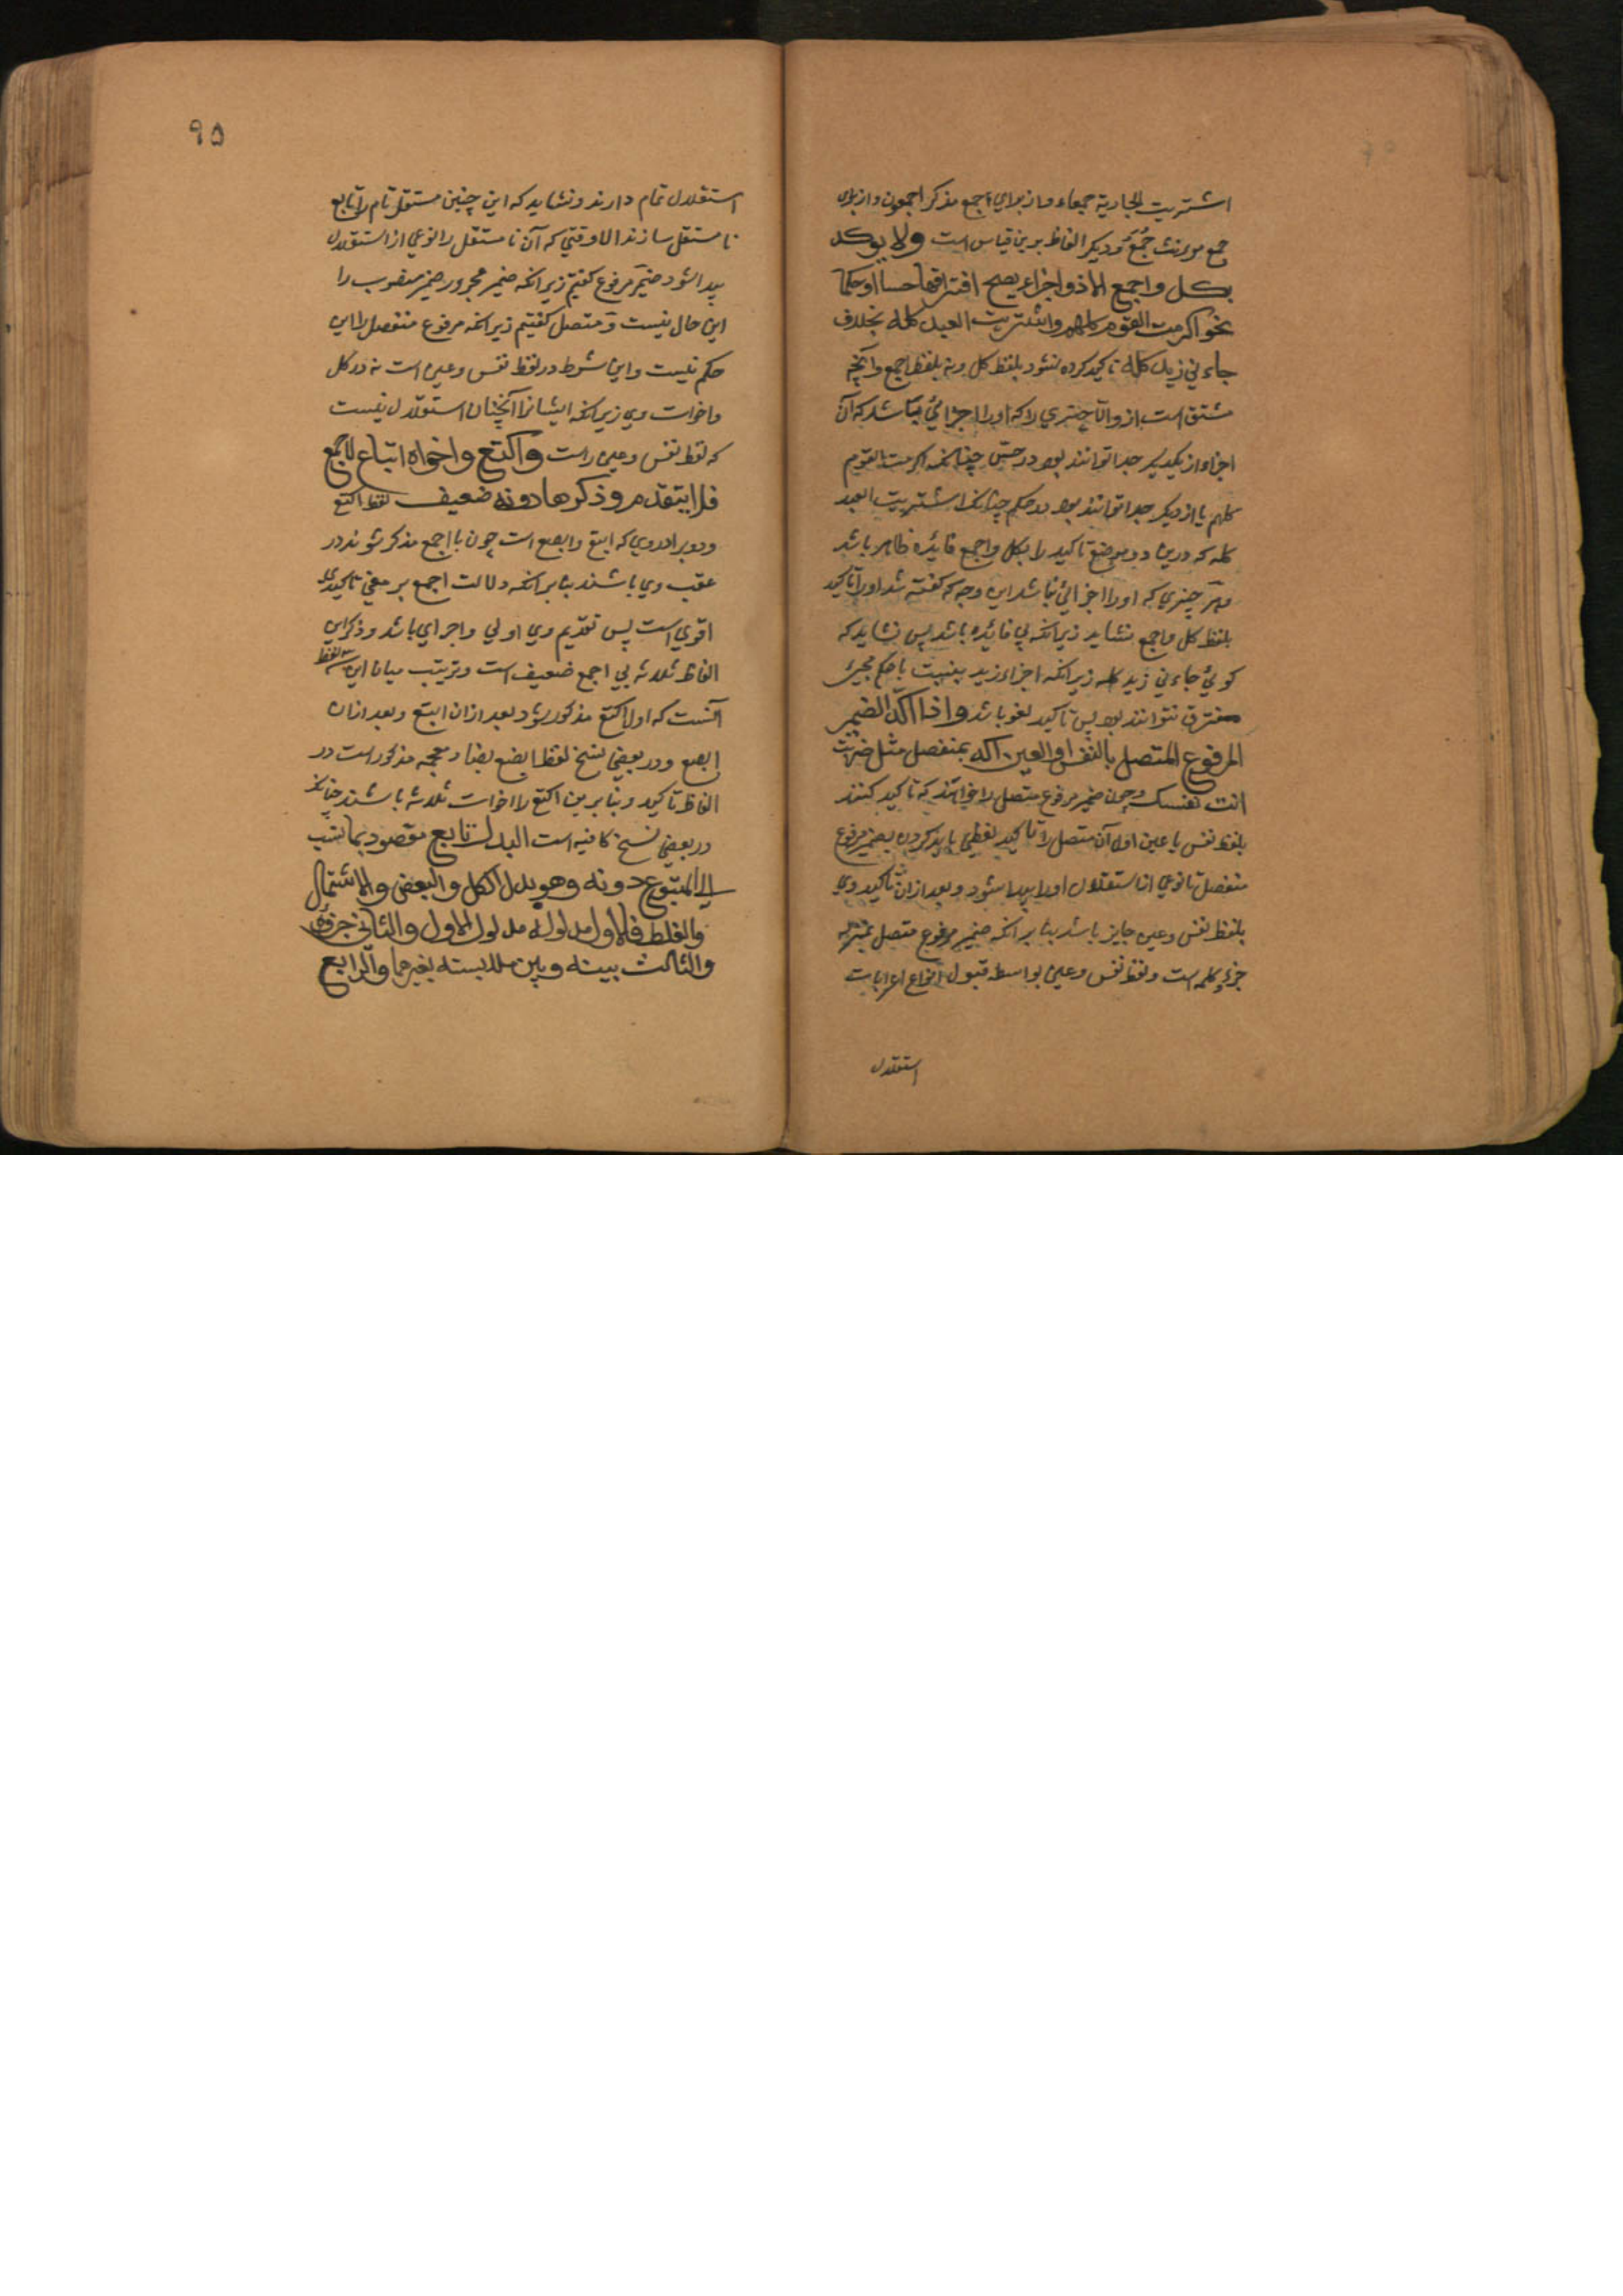 اشتریت الجاریة جمعاء و از برای اجمع مذکر اجمعون و از برای
جمع مونث جُمَعُ و دیکر الفاظ برین قیاس است ولا یوکد
بکل واجمع الا ذو اجزاء یصح افتراقها حسا او حکما
نحو اکرمت القوم کلهم واشتریت العبد کله بخلاف
جاءنی زید کله تاکید کرده نشود بلفظ کل و نه بلفظ اجمع و آنچه
مشتق است از و الا چیزی را که او را اجزائی باشد که آن
اجزاء از یکدیکر جدا توانند بود در حس چنانکه اکرمت القوم
کلهم یا از دیکر جدا توانند بود در حکم چنانکه اشتریت العبد
کله که درین دو موضع تاکید را بکل واجمع فائده ظاهر باشد
وهر چیزی که او را اجزائی نباشد این وجه که کفته شد او را تاکید
بلفظ کل واجمع نشاید زیرانکه بی فائده باشد پس نشاید که
کوئی جاءنی زید کله زیرانکه اجزاء زید بنسبت با حکم مجیئ
مفترق نتوانند بود پس تاکید لغو باشد واذا اکد الضمیر
المرفوع المتصل بالنفس والعین اکد بمنفصل مثل ضربت
انت نفسک وچون ضمیر مرفوع متصل را خواهند که تاکید کنند
بلفظ نفس یا عین اول آن متصل را تاکید لفظی باید کردن بضمیر مرفوع
منفصل تا نوعی از استقلال او را پیدا شود و بعد ازان تاکید وی
بلفظ نفس وعین جایز باشد بنا برانکه ضمیر مرفوع متصل بمنزله
جزءِ کلمه است و لفظ نفس وعین بواسطه قبول انواع اعرابات
استقلال
۹۵
استقلال تمام دارند و نشاید که این چنین مستقل تام را تابع
نا مستقل سازند الا وقتی که آن نا مستقل را نوعی از استقلال
پیدا شود ضمیر مرفوع کفتیم زیرانکه ضمیر مجرور و ضمیر منصوب را
این حال نیست و متصل کفتیم زیرانکه مرفوع منفصل را این
حکم نیست و این شرط در لفظ نفس وعین است نه در کل
واخوات وی زیرانکه ایشانرا آنچنان استقلال نیست
که لفظ نفس وعین راست واکتع واخواه اتباع لاجمع
فلا یتقدم وذکرها دونه ضعیف لفظ اکتع
ودو برادر وی که ابتع وابصع است چون با اجمع مذکر شوند در
عقب وی باشند بنا برانکه دلالت اجمع بر معنی تاکیدی
اقوی است پس تقدیم وی اولی واجرای باشد وذکر این
الفاظ ثلاثه بی اجمع ضعیف است وترتیب میان این سه لفظ
آنست که اول اکتع مذکور شود بعد ازان ابتع وبعد ازان
ابصع ودر بعضی نسخ لفظ ابضع بضاد معجمه مذکور است در
الفاظ تاکید وبنا برین اکتع را اخوات ثلاثه باشند چنانکه
در بعضی نسخ کافیه است البدل تابع مقصود بما نسب
الی المتبوع دونه وهو بدل الکل والبعض والاشتمال
والغلط فالاول مدلوله مدلول الاول والثانی جزؤه
والثالث بینه وبین ملابسته بغیرهما والرابع